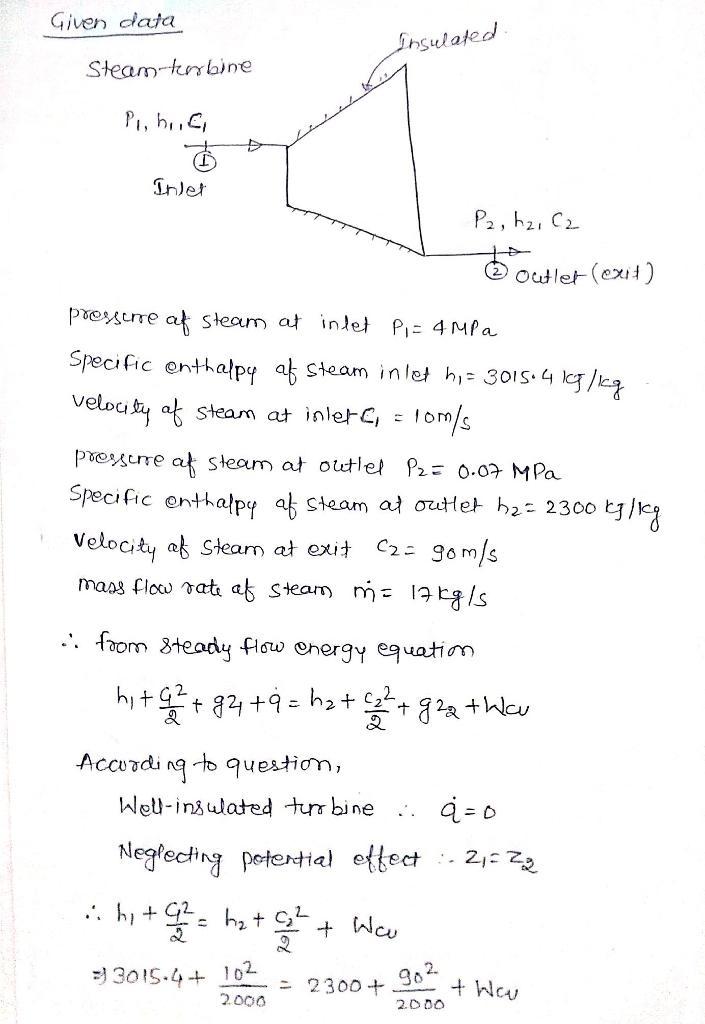 Given data
Insulated
Steam-turbine
P₁, h₁, C₁
①
Inlet
P₂, h₂, C₂
② Outlet (exit)
pressure of steam at inlet P₁ = 4 MPa
Specific enthalpy of steam inlet h₁ = 3015.4 kJ/kg
velocity of steam at inlet C₁ = 10m/s
pressure of steam at outlet P₂ = 0.07 MPa
Specific enthalpy of steam at outlet h₂ = 2300 kJ/kg
Velocity of steam at exit C₂ = 90m/s
mass flow rate of steam ṁ = 17 kg/s
∴ from steady flow energy equation
h₁ + C₁²/2 + gz₁ + q̇ = h₂ + C₂²/2 + gz₂ + Wcv
According to question,
Well-insulated turbine ∴ q̇ = 0
Neglecting potential effect ∴ z₁ = z₂
∴ h₁ + C₁²/2 = h₂ + C₂²/2 + Wcv
⇒ 3015.4 + 10²/2000 = 2300 + 90²/2000 + Wcv